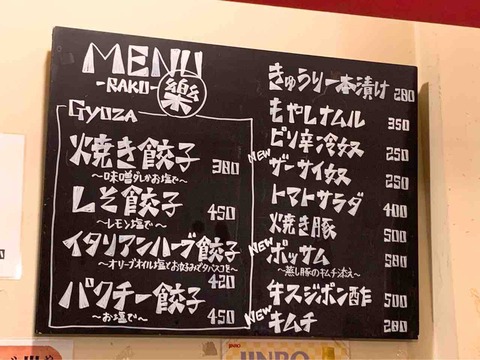 MENU
-RAKO-
樂
GYOZA
焼き餃子 380
〜味噌ダレかお塩で〜
しそ餃子 450
〜レモン塩で〜
イタリアンハーブ餃子
〜オリーブオイル塩とお好みでタバスコを〜
420
パクチー餃子
〜お塩で〜 450
きゅうり一本漬け 280
もやしナムル 350
ピリ辛冷奴 250
NEW ザーサイ奴 250
トマトサラダ 400
焼き豚 500
NEW ポッサム 580
〜蒸し豚のキムチ添え〜
牛スジポン酢 500
NEW キムチ 280
JINRO
JINRO